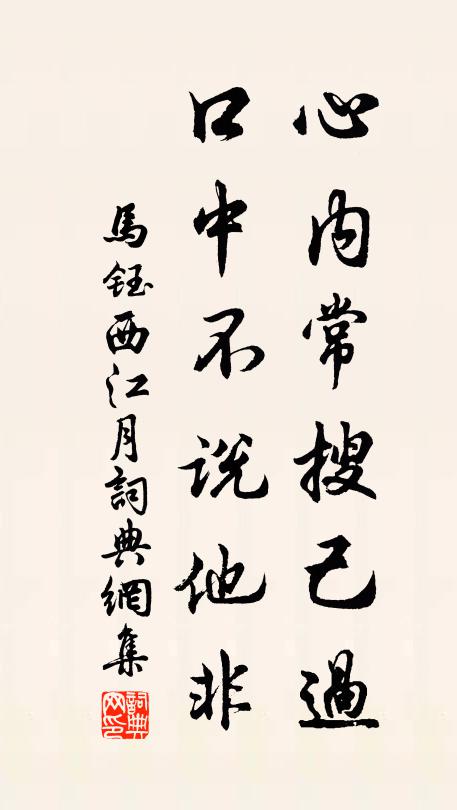 心内常搜己過
口中不说他非
馬鈺西江月詞典網集
詞典网印